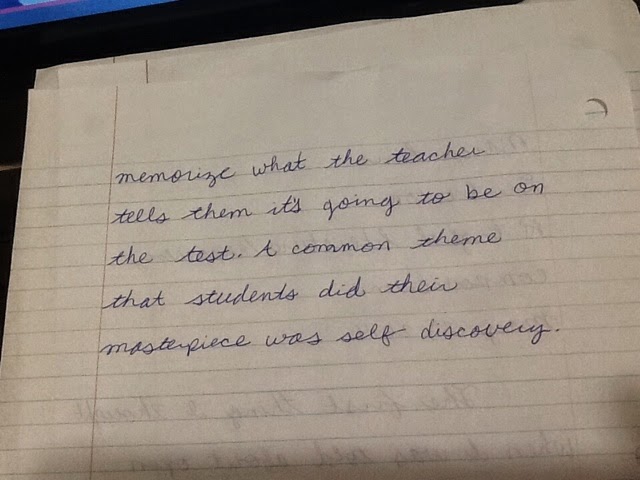 memorize what the teacher
tells them it's going to be on
the test. A common theme
that students did their
masterpiece was self discovery.